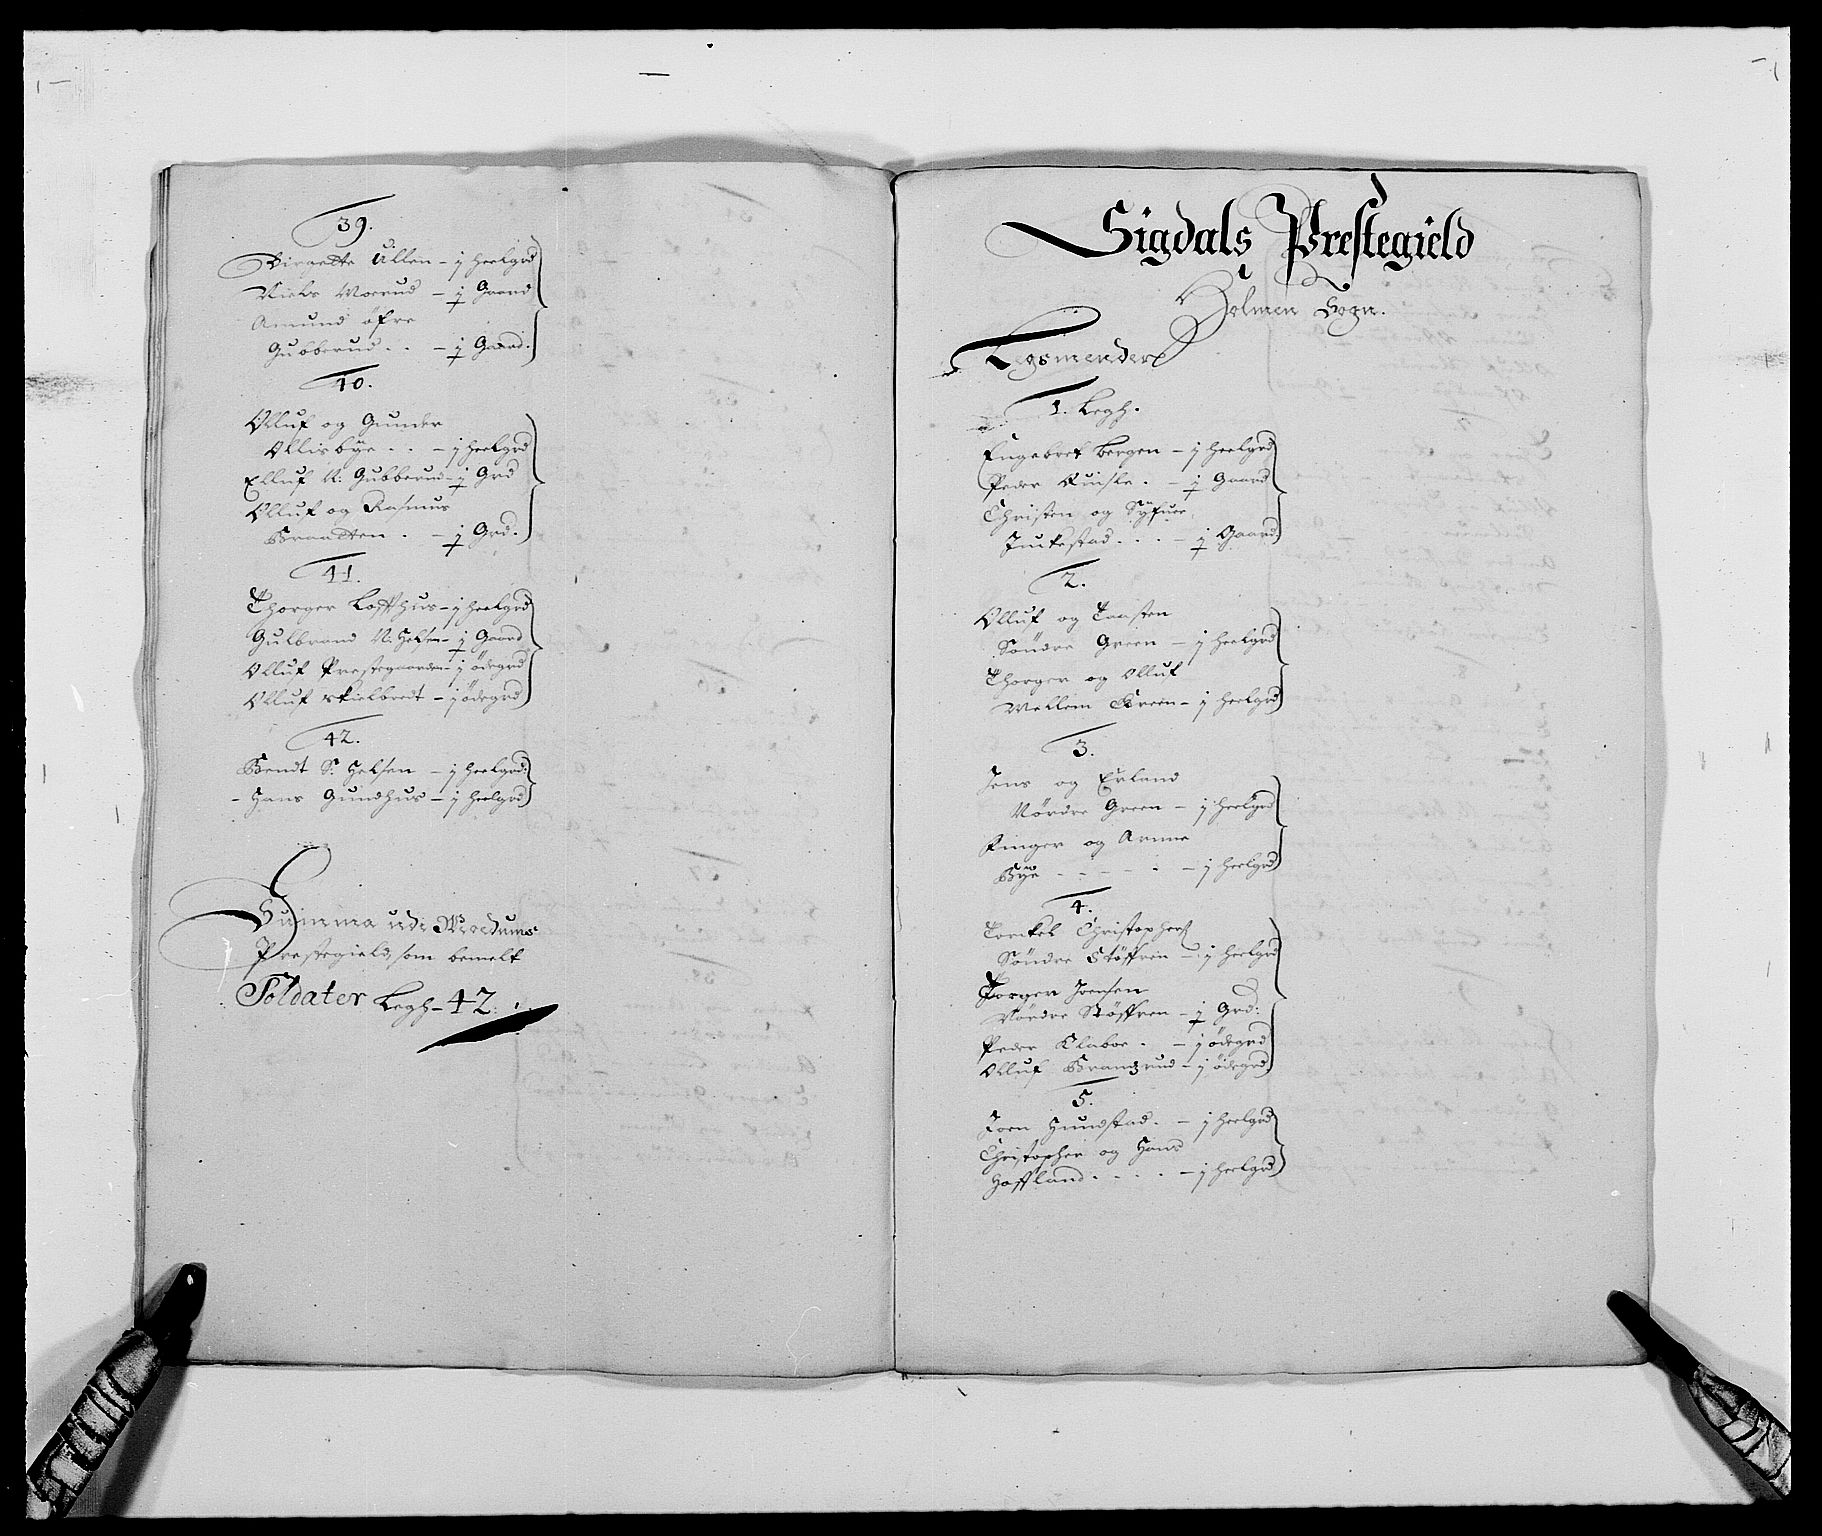 39.
Birgette Ullen - j heelgrd
Niels Moerud - ½ Gaard
Amund öfre
Gubberud . . - ½ Gaard.
40.
Olluf og Gunder
Ollisbye . . - j heelgrd
Elluf N: Gubberud - ½ Grd
Olluf og Rasmus
Braatten . - ½ Grd.
41.
Thorger Loffthus - j heelgrd
Gulbrand N. Helsen - ½ Gaard
Olluf Prestegaarden - j ödegrd
Olluf Skielbredt - j ödegrd
42.
Bendt S: Helsen - j heelgrd.
- Hans Gundhus - j heelgrd
Summa udi Modums
Prestegield, som bemelt
Soldater Legh - 42:
Sigdals Prestegield
Holmen Sogn.
Legsmender
1. Legh.
Engebret Bergen - j heelgrd
Peder Quisle . - ½ Gaard
Christen og Syfuer
Juckestad . . . - ½ Gaard
2.
Olluf og Taasten
Söndre Green - j heelgrd
Thorger og Olluf
Mellem Green - j heelgrd
3.
Jens og Erland
Nördre Green - j heelgrd
Ringer og Arnne
Bye - - - - - j heelgrd
4.
Torckel Christophers
Söndre Stöffren - j heelgrd
Torger Joensen
Nördre Stöffren - ½ Grd:
Peder Klaboe . - j ödegrd
Olluf Brangrud - j ödegrd
5.
Joen Hundstad . - j heelgrd
Christopher og Hans
Hoffland . . . . - j heelgrd